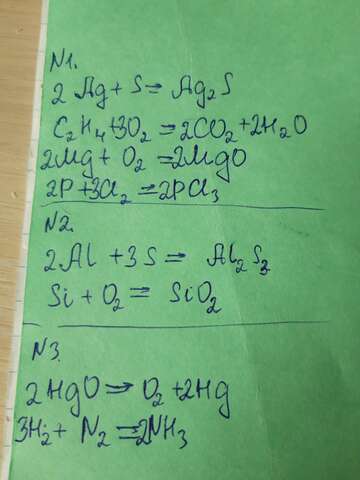 N1.
2 Ag + S = Ag₂S
C₂H₄ + 3O₂ = 2CO₂ + 2H₂O
2Mg + O₂ = 2MgO
2P + 3Cl₂ = 2PCl₃
N2.
2Al + 3S = Al₂S₃
Si + O₂ = SiO₂
N3.
2HgO = O₂ + 2Hg
3H₂ + N₂ = 2NH₃